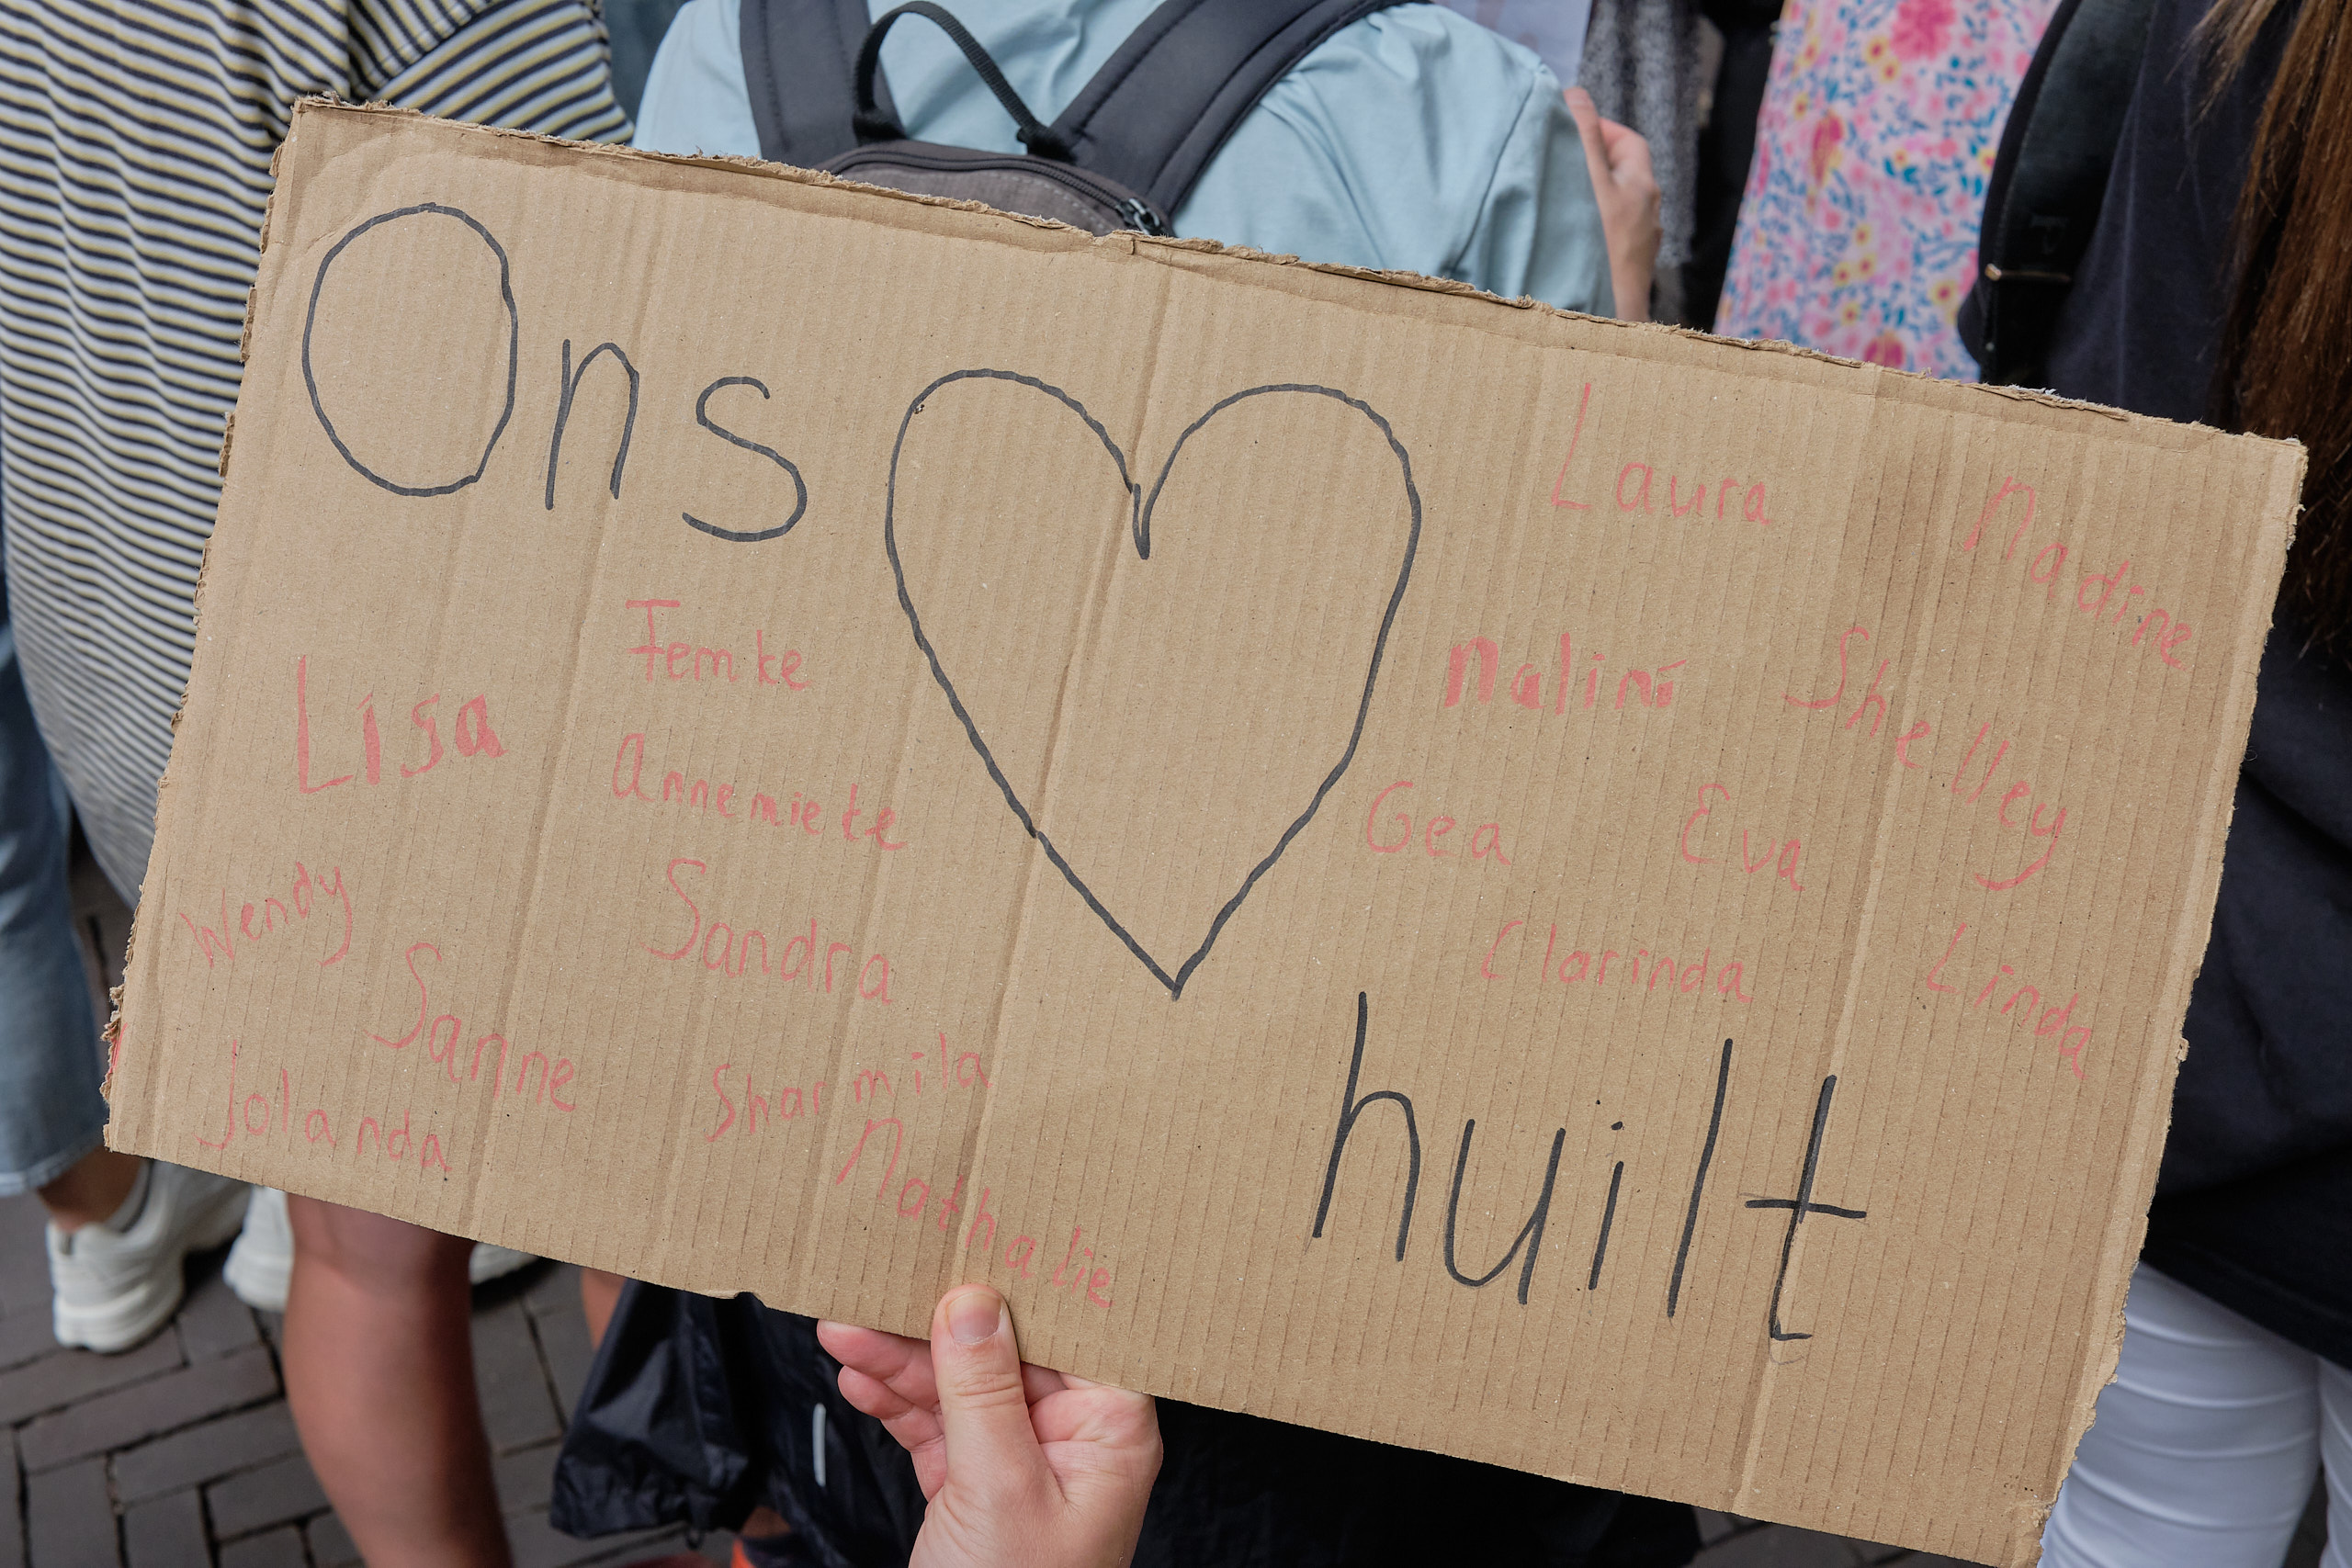 Ons
Laura
Nadine
Femke
Nalini
Shelley
Lisa
Annemieke
Gea
Eva
Wendy
Sandra
Clarinda
Linda
Sanne
Sharmila
Jolanda
Nathalie
huilt